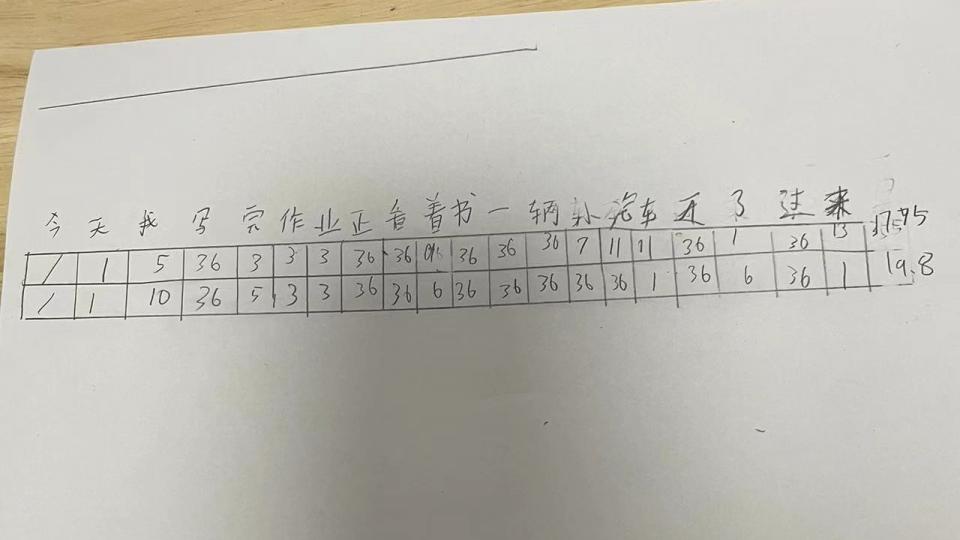 今天我写完作业正看着书一辆小汽车开了过来
1 1 5 36 3 3 3 36 36 36 36 36 7 11 11 36 1 36 13
1 1 10 36 5 3 3 36 36 6 36 36 36 36 36 1 36 6 36 1 19.8